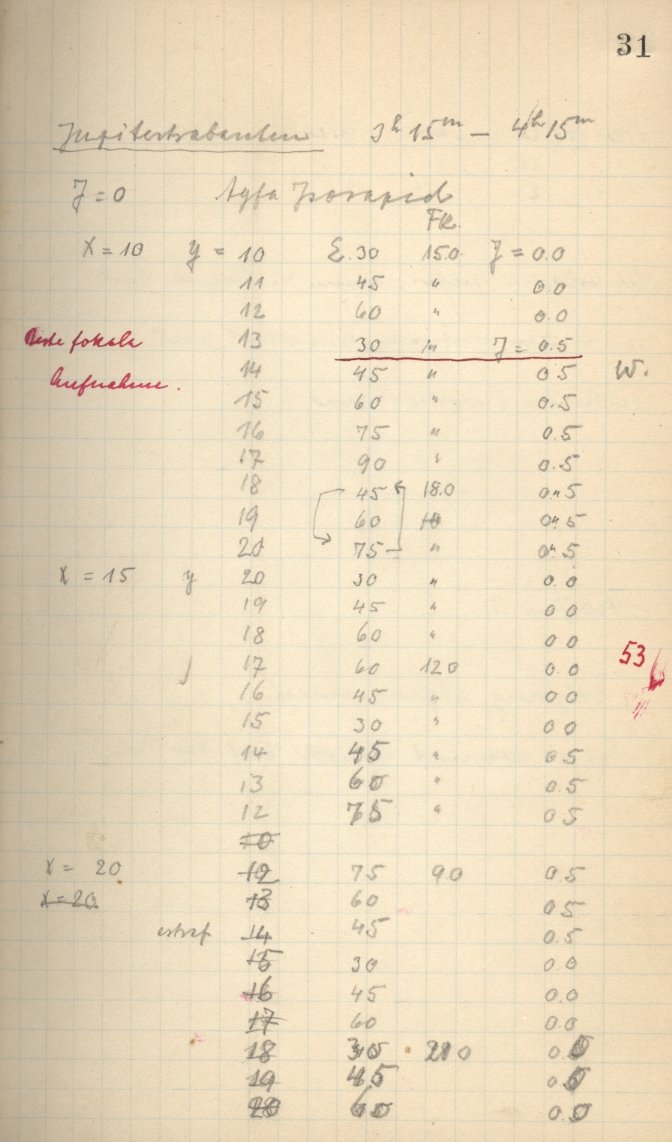 31
Jupitertrabanten 3h 15m — 4h 15m
J = 0 Agfa Isorapid
Fk.
X = 10 y = 10 E. 30 15.0 J = 0.0
11 45 " 0.0
12 60 " 0.0
Beste fokale 13 30 " J = 0.5
Aufnahme. 14 45 " 0.5 W.
15 60 " 0.5
16 75 " 0.5
17 90 " 0.5
18 45 18.0 0.5
19 60 0.5
20 75 " 0.5
X = 15 y 20 30 " 0.0
19 45 0.0
18 60 " 0.0
53
17 60 12.0 0.0
16 45 " 0.0
15 30 " 0.0
14 45 " 0.5
13 60 " 0.5
12 75 " 0.5
10
X = 20 12 75 9.0 0.5
X = 20 13 60 0.5
14 45 0.5
15 30 0.0
16 45 0.0
17 60 0.0
18 21.0
19 45
20 60